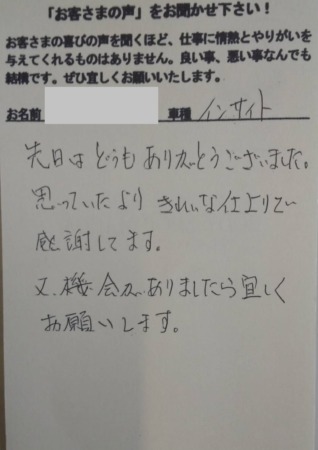 「お客さまの声」をお聞かせ下さい!
お客さまの喜びの声を聞くほど、仕事に情熱とやりがいを
与えてくれるものはありません。良い事、悪い事なんでも
結構です。ぜひ宜しくお願いいたします。
お名前 車種 インサイト
先日はどうもありがとうございました。
思っていたよりきれいな仕上りで
感謝してます。
又、機会がありましたら宜しく
お願いします。